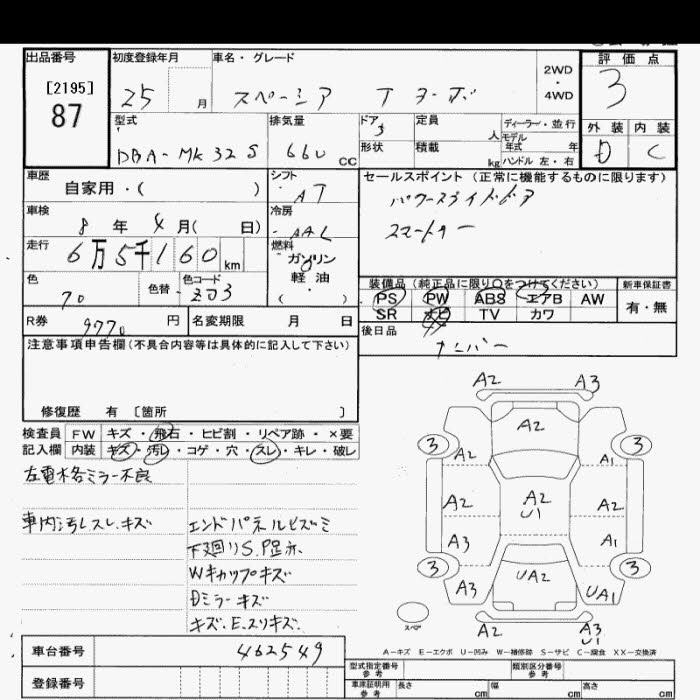 出品番号
[2195]
87
初度登録年月
25 月
車名・グレード
スペーシア ターボ
2WD
・
4WD
評価点
3
外装 内装
D C
型式
DBA-MK32S
排気量
660 cc
ドア
5
定員
人
ディーラー・並行
モデル
年式 年
形状
積載
kg
ハンドル 左・右
車歴
自家用・( )
シフト
AT
車検
8 年 4 月( 日)
冷房
AAC
走行
6万5千160 km
燃料
ガソリン
軽・油
( )
色
色替
色コード
ZJ3
R券
9770 円
名変期限 月 日
セールスポイント (正常に機能するものに限ります)
パワースライドドア
スマートキー
装備品 (純正品に限り○をつけてください)
PS PW ABS エアB AW
SR ナビ TV カワ
新車保証書
有・無
後日品
ナンバー
注意事項申告欄(不具合内容等は具体的に記入して下さい)
修復歴 有 [箇所 ]
検査員
記入欄
FW キズ・飛石・ヒビ割・リペア跡・×要
内装 キズ・汚レ・コゲ・穴・スレ・キレ・破レ
左電格ミラー不良
車内汚レスレ、キズ
エンドパネルヒズミ
下廻りS、P足ホ
Wキャップキズ
Dミラーキズ
キズ、E、スリキズ、
A2 A3
A2
3 3
A2 A1
A2 A2 A2
U1
A3 A1
3 3
A3 UA2 UA1
スペア
A2 A3
U1
A-キズ E-エクボ U-凹み W-補修跡 S-サビ C-腐食 XX-交換済
車台番号
462549
登録番号
型式指定番号
参考
類別区分番号
参考
車庫証明用
参考
長さ cm
幅 cm
高さ cm